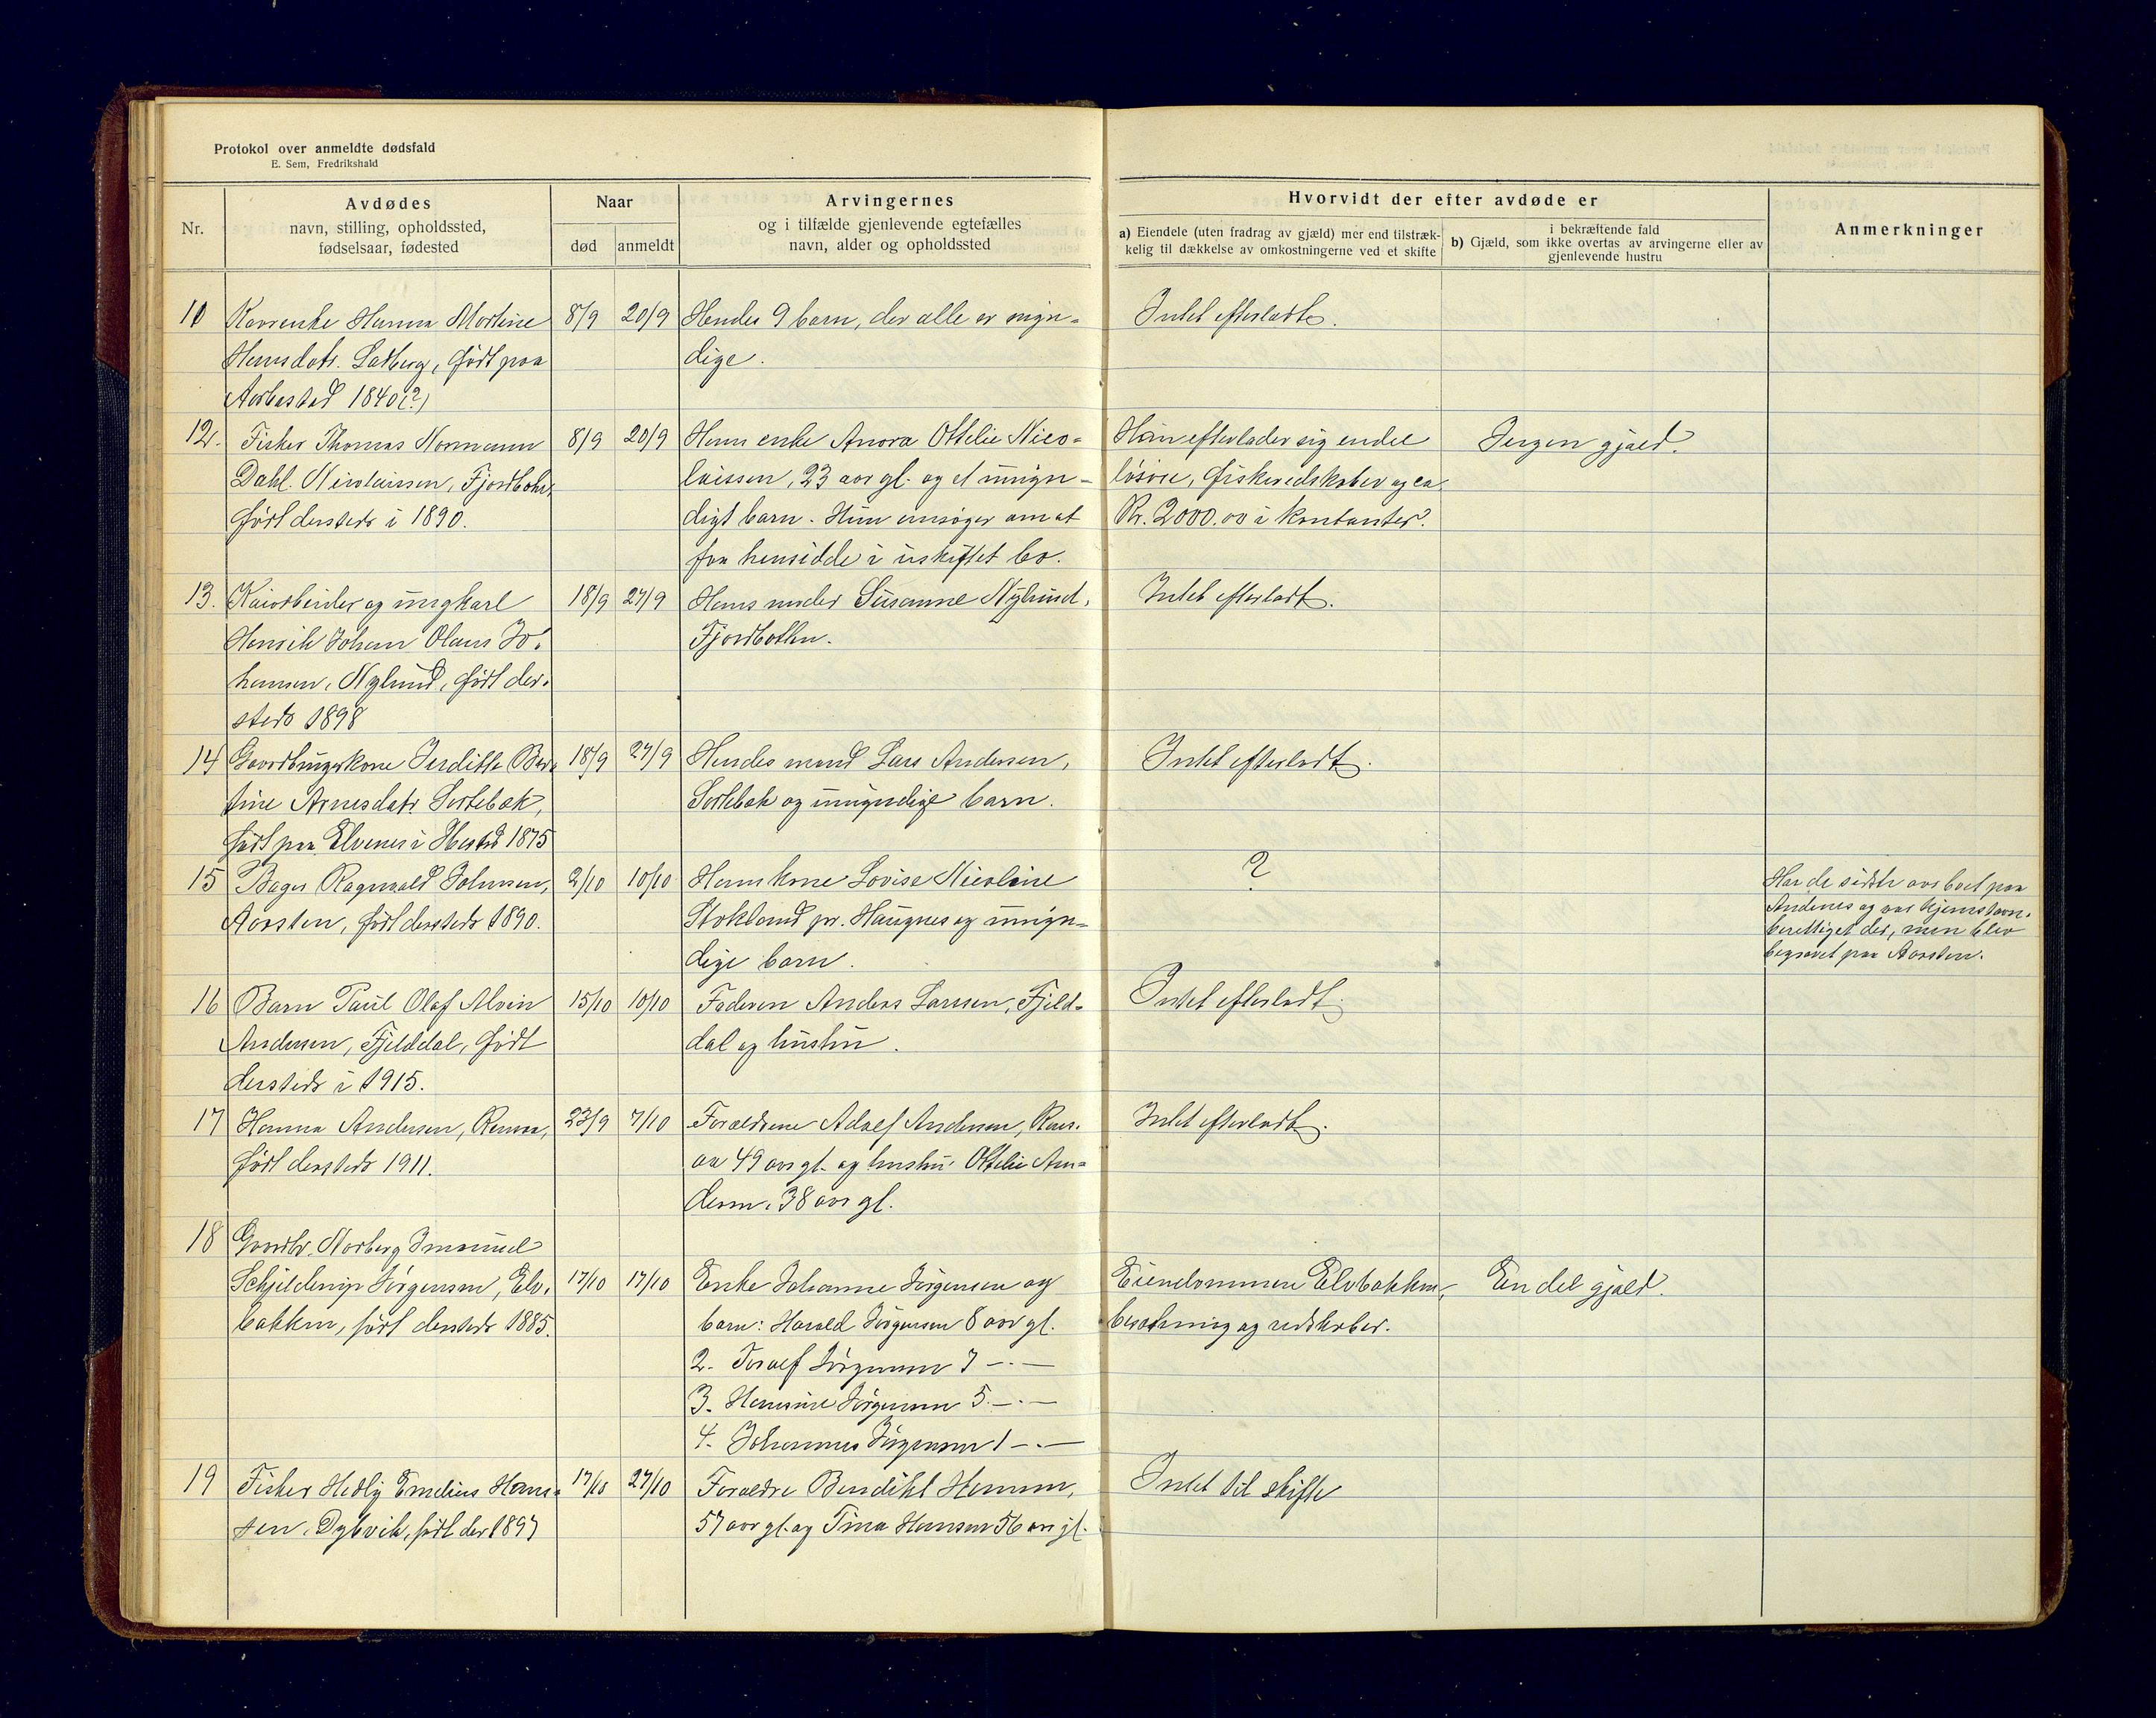 Protokol over anmeldte dødsfald
E. Sem, Fredrikshald
Nr.
Avdødes
navn, stilling, opholdssted,
fødselsaar, fødested
Naar
død
anmeldt
Arvingernes
og i tilfælde gjenlevende egtefælles
navn, alder og opholdssted
Hvorvidt der efter avdøde er
a) Eiendele (uten fradrag av gjæld) mer end tilstræk-
kelig til dækkelse av omkostningerne ved et skifte
i bekræftende fald
b) Gjæld, som ikke overtas av arvingerne eller av
gjenlevende hustru
Anmerkninger
11 Kaarenke Hanna Martine 8/9 20/9 Hendes 9 barn, der alle er myn- Intet efterladt.
Hansdatr. Latberg, født paa dige.
Aarbostad 1840(?)
12. Fisker Thomas Normann 8/9 20/9 Hans enke Anora Ottelie Nico- Han efterlader sig endel Ingen gjæld.
Dahl Nicolaissen, Fjordbotn, laissen, 23 aar gl. og et umyn- løsøre, fiskeredskaber og ca
født dersteds i 1890. digt barn. Hun ansøger om at Kr. 2000.00 i kontanter.
faa hensidde i uskiftet bo.
13. Kaiarbeider og ungkarl 18/9 27/9 Hans moder Susanne Nylund, Intet efterladt.
Henrik Johan Olaus Jo- Fjordbotten.
hansen, Nylund, født der-
steds 1898
14 Gaardbrugerkone Jerditte Ber- 18/9 27/9 Hendes mand Lars Andersen, Intet efterladt.
tine Arnesdatr. Sortebæk, Sortebæk og umyndige barn.
født paa Elvenes i 1875
15 Bager Ragnvald Johnsen, 2/10 10/10 Hans kone Lovise Nicoline ? Har de sidste aar boet paa
Aarsten, født dersteds 1890. Stokland pr. Haugnes og umyn- Andenes og var hjemstavn-
dige barn. berettiget der, men blev
begravet paa Aarsten.
16 Barn Paul Olaf Alvin 15/10 10/10 Faderen Anders Larssen, Fjeld- Intet efterladt.
Andersen, Fjelddal, født dal og hustru.
dersteds i 1915.
17 Hanna Andersen, Renså, 23/9 7/10 Forældrene Adolf Andersen, Rens-
født dersteds 1911. aa 49 aar gl. og hustru Ottelie An- Intet efterladt.
dersen, 38 aar gl.
18 Gaardbr. Norberg Imanuel
Schjelderup Jørgensen, Elv- 17/10 17/10 Enke Johanne Jørgensen og Eiendommen Elvbakken, En del gjæld.
bakken, født dersteds 1885. barn: Harald Jørgensen 8 aar gl. besætning og redskaber.
2. Toralf Jørgensen 7 -"-
3. Hansine Jørgensen 5 -"-
4. Johannes Jørgensen 1 -"-
19 Fisker Hedly Emelius Han- 17/10 27/10 Forældre Bendikt Hansen, Intet til skifte
sen, Dybvik, født der 1897 57 aar gl. og Tina Hansen 56 aar gl.